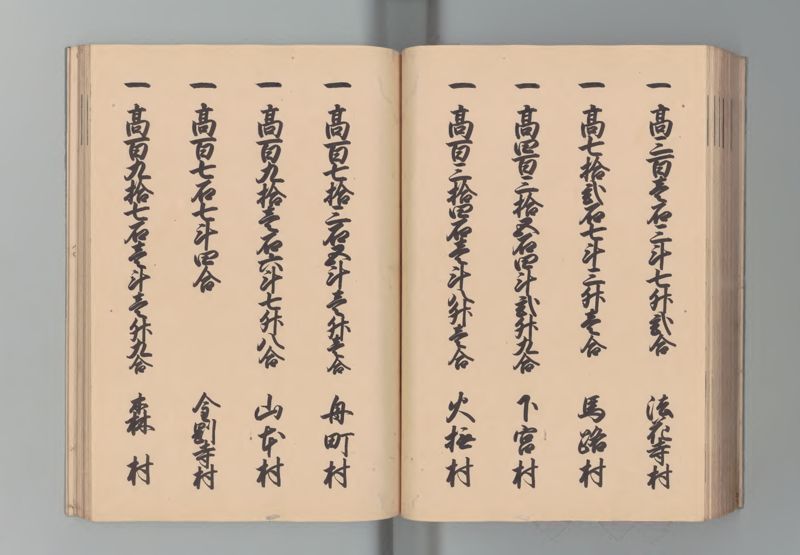 一高三百壱石三斗七升弐合 法花寺村
一高七拾弐石七斗三升壱合 馬路村
一高四百三拾五石四斗弐升九合 下宮村
一高百三拾四石壱斗八升壱合 火打村
一高百七拾三石五斗壱升壱合 舟町村
一高百九拾壱石六斗七升八合 山本村
一高百七石七斗四合 金剛寺村
一高百九拾七石壱斗壱升九合 森村